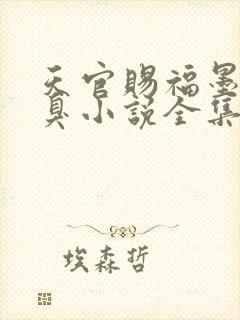 天官赐福墨
臭小说全集
埃森哲